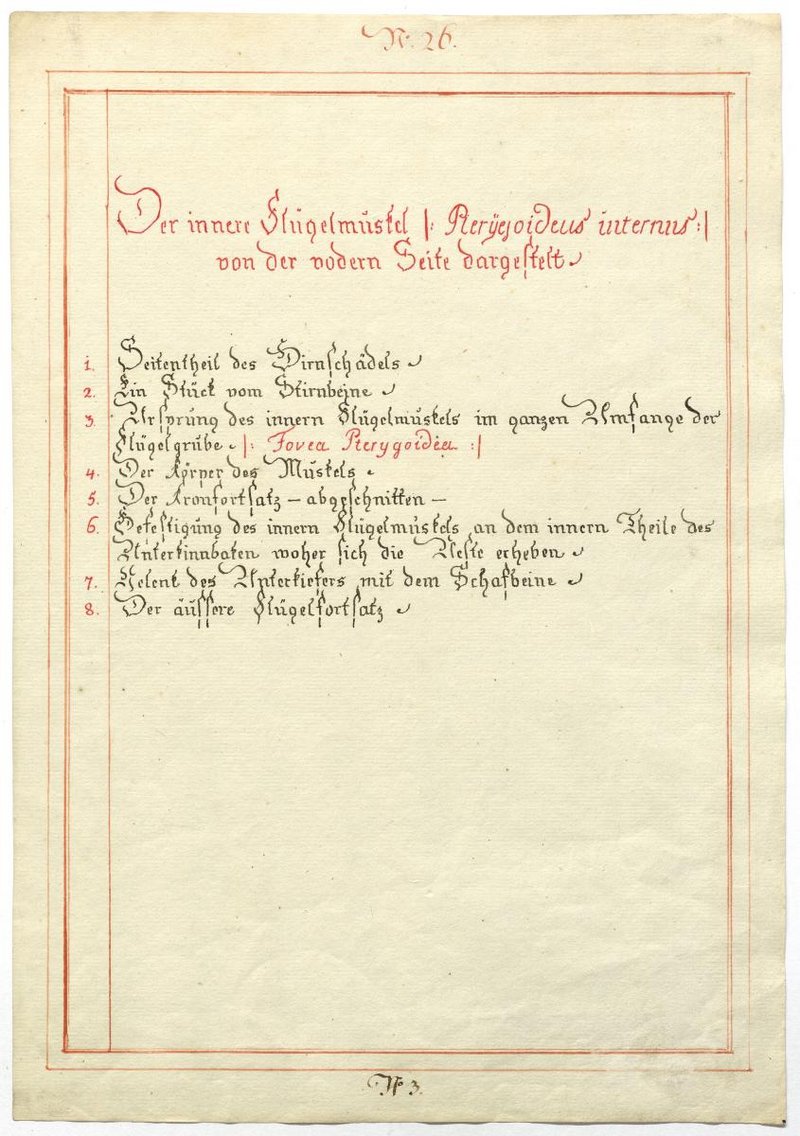 N. 26.
Der innere Flügelmuskel |: Pterÿgoideus internus :|
von der vodern Seite dargestelt
1. Seitentheil des Hirnschädels
2. Ein Stück vom Stirnbeine
3. Ursprung des innern Flügelmuskels im ganzen Umfange der
Flügelgrube |: Fovea Pterygoidea :|
4. Der Körper des Muskels
5. Der Kronfortsatz – abgeschnitten –
6. Befestigung des innern Flügelmuskels an dem innern Theile des
Unterkinnbaken woher sich die Aeste erheben
7. Gelenk des Unterkiefers mit dem Schafbeine
8. Der äussere Flügelfortsatz
N 3.